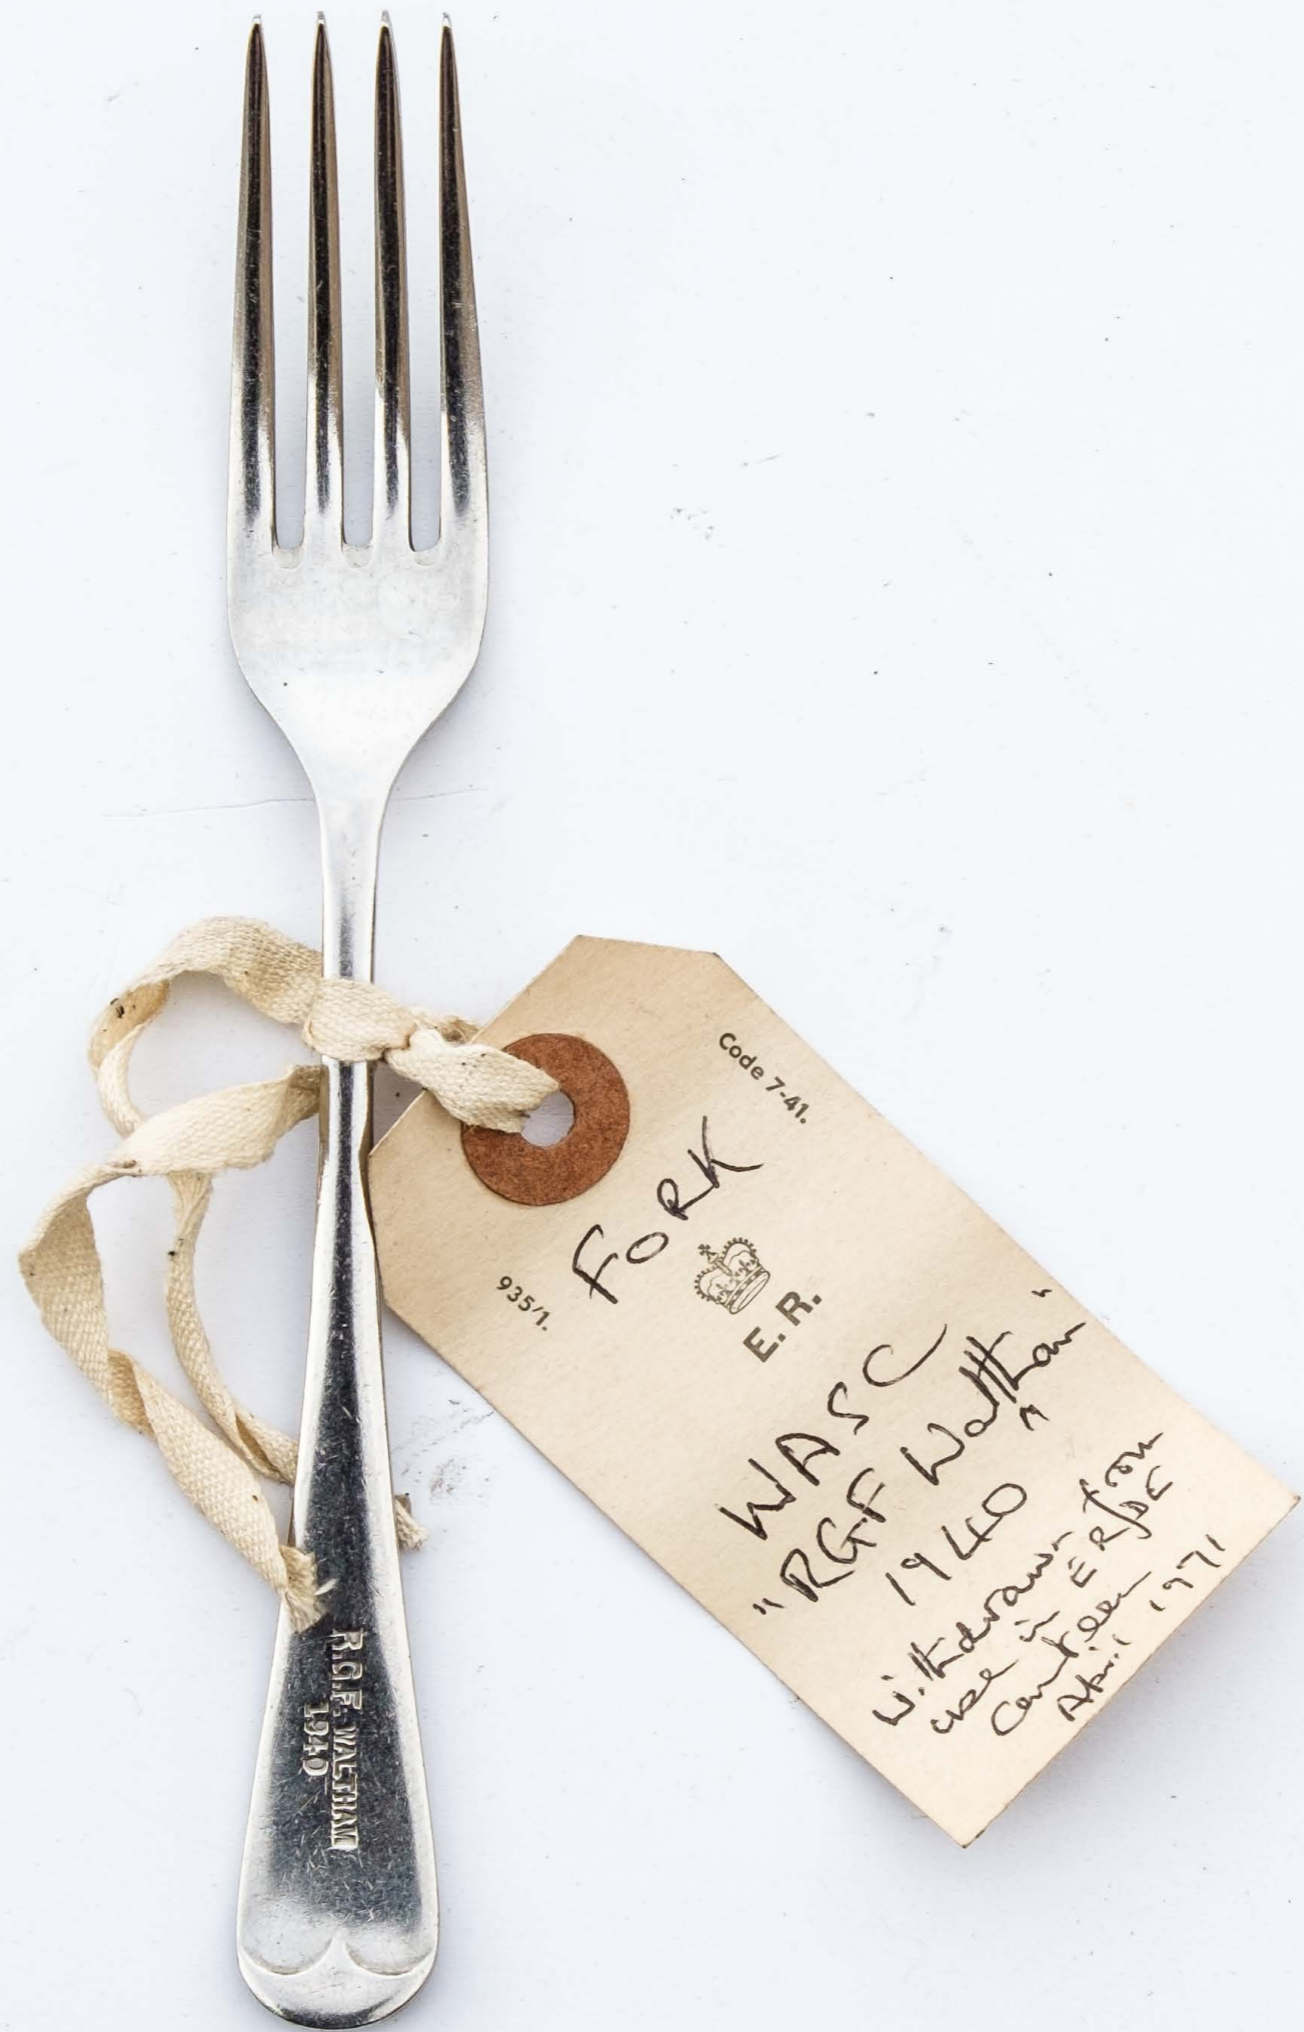 Code 7-41.
935/1.
FORK
E. R.
WASC
"RGF Waltham"
1940
Withdrawn from
use in ERDE
Canteen
April 1971
R.G.F. WALTHAM
1940